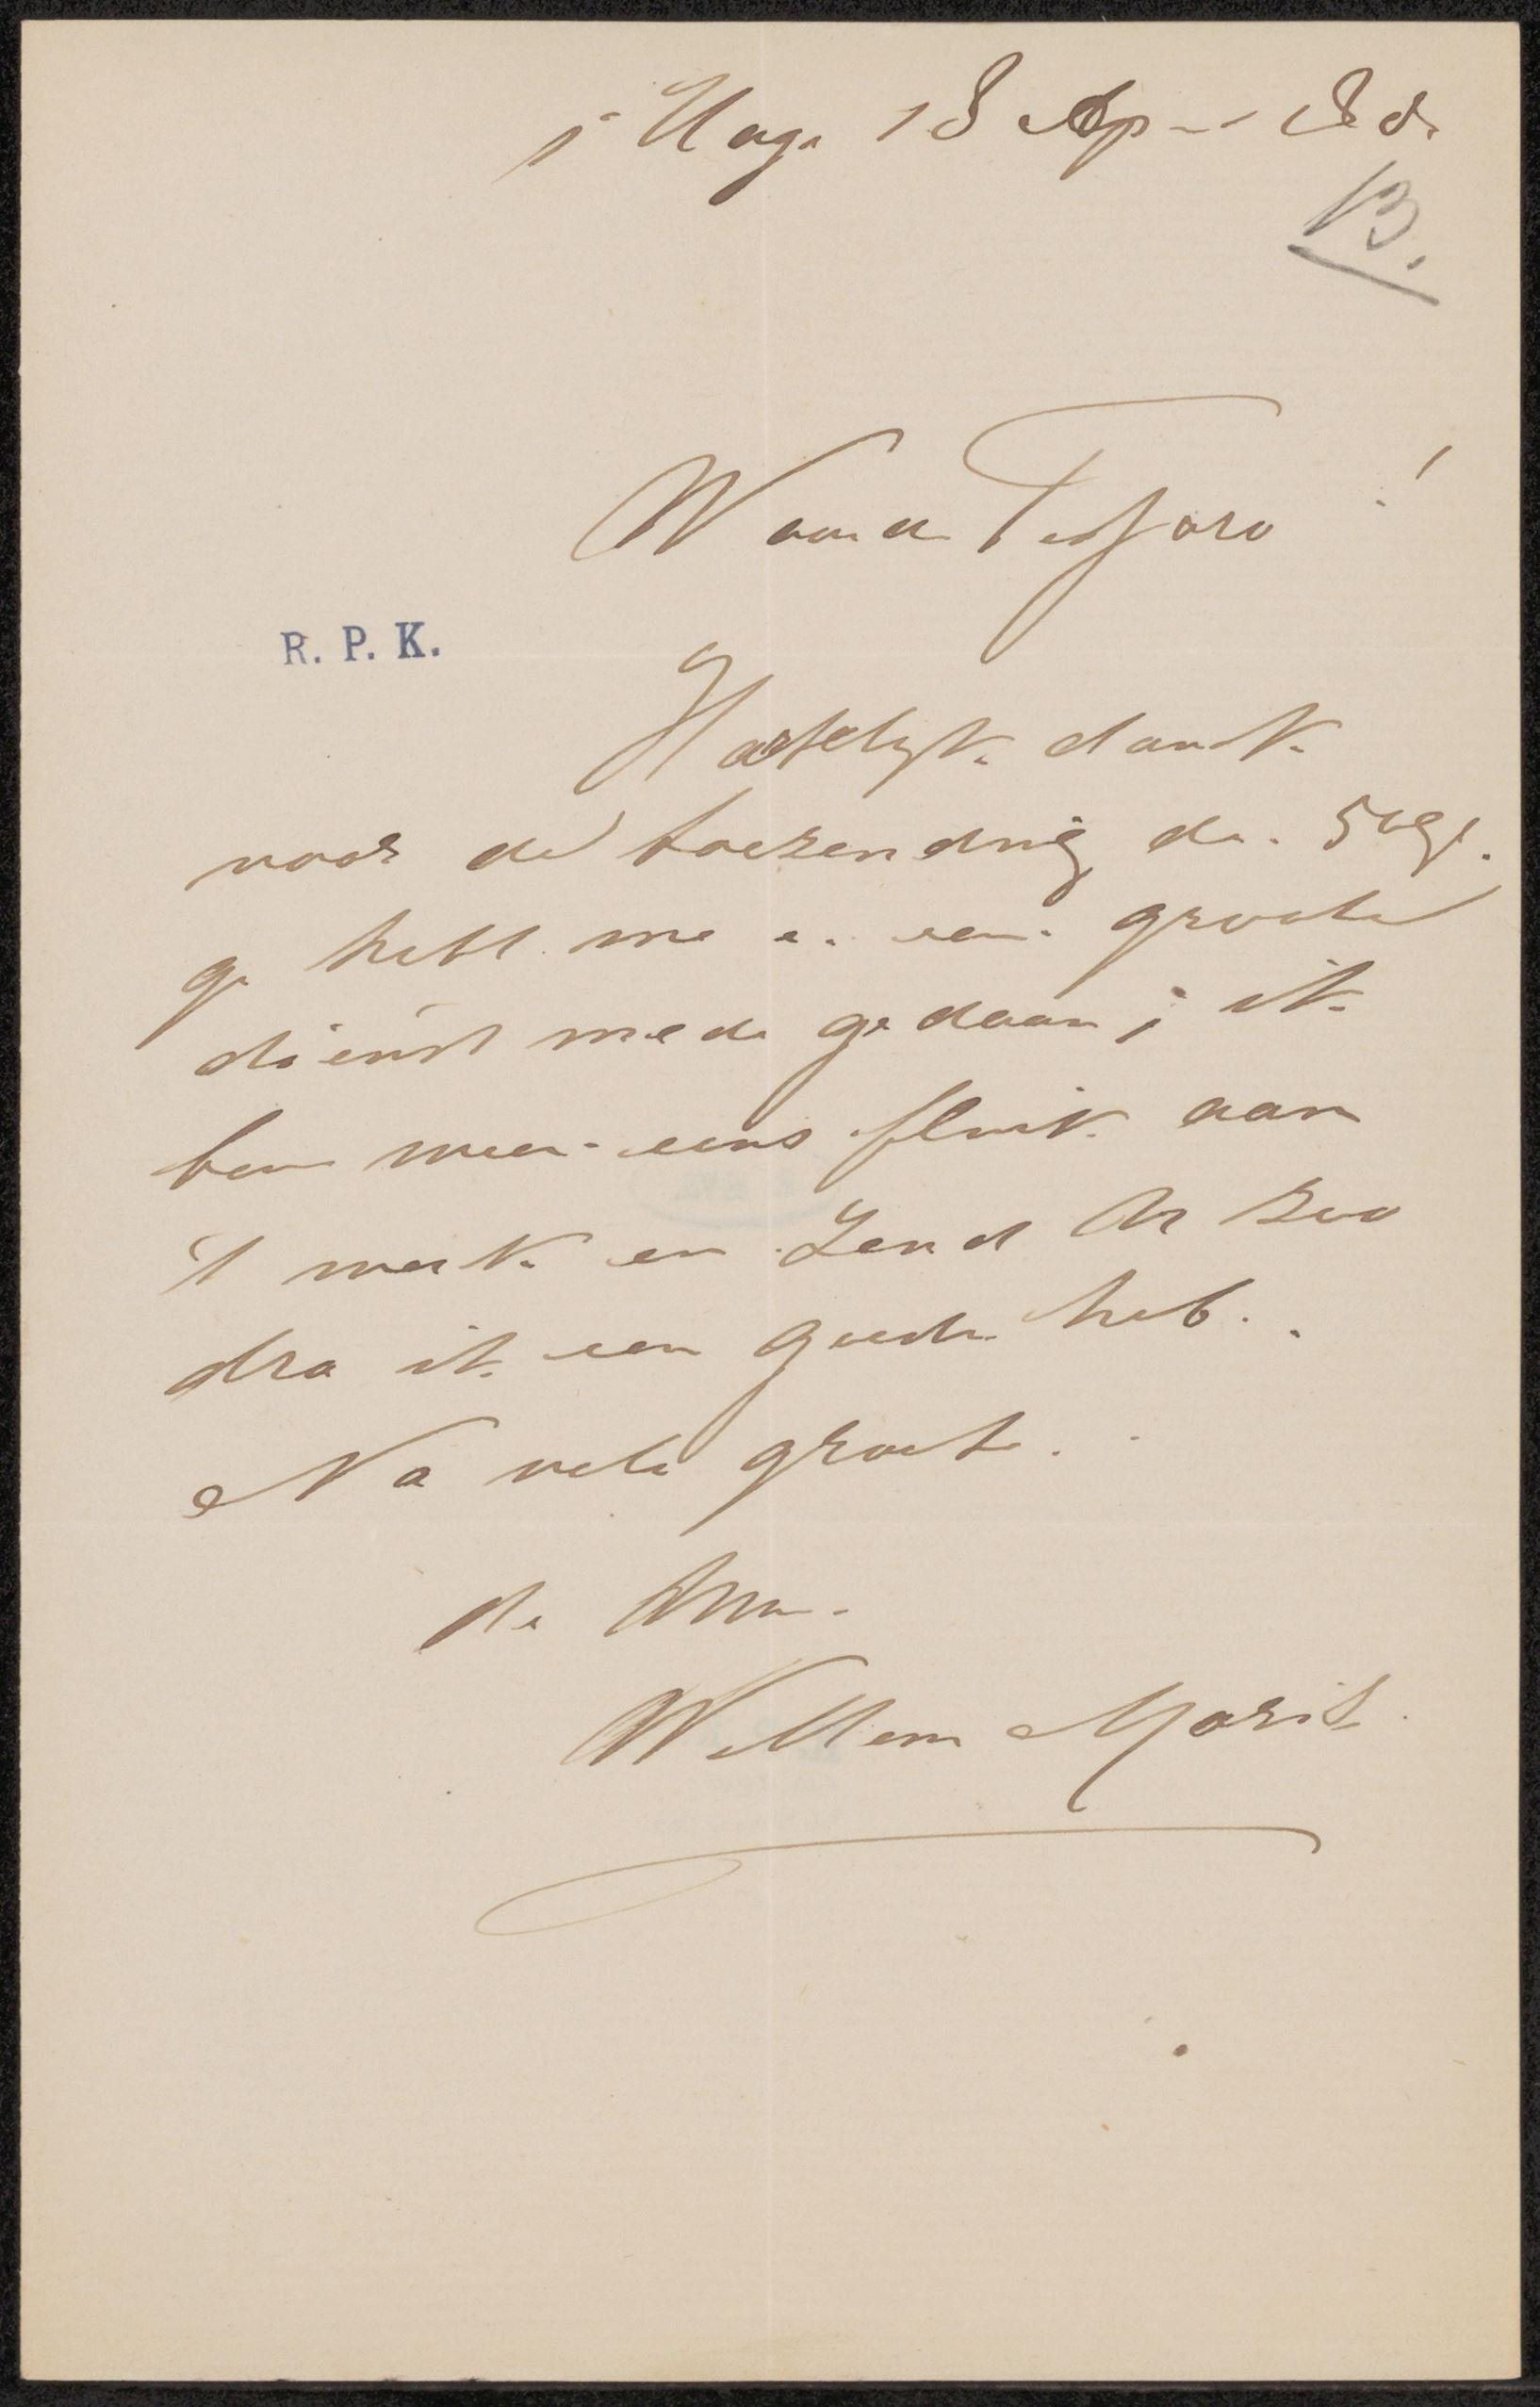 's Hage 18 Apr 188
13.
Waarde Tersteeg !
R. P. K.
Hartelijk dank
voor de toezending der 50 gl.
ge hebt me er een groote
dienst mede gedaan; ik
ben weer eens flink aan
't werk en zend U zoo
dra ik een goede heb.
Na vele groete.
de Uwe
Willem Maris